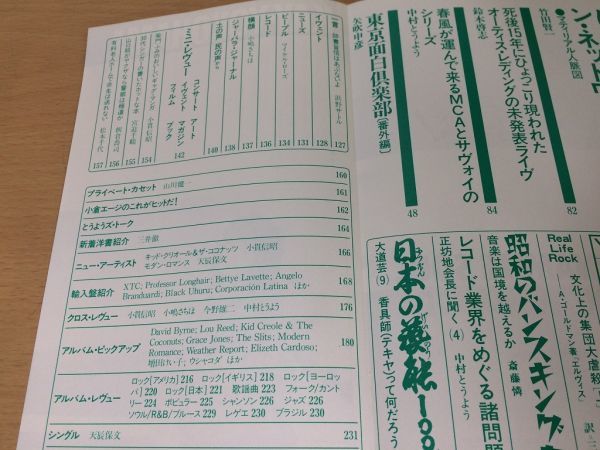 ン・ネットワ
竹田賢一
マテリアル人脈図
82
死後15年にひょっこり現われた
オーティス・レディングの未発表ライヴ
鈴木啓志
84
春風が運んで来るMCAとサヴォイの
シリーズ
中村とうよう
48
東京面白倶楽部〔番外編〕
矢吹申彦
Real Life Rock
文化上の集団大虐殺
A・ゴールドマン著『エルヴィス』
訳=三
昭和のバンスキング
音楽は国境を越えるか
斎藤憐
レコード業界をめぐる諸問題
正坊地会長に聞く(4) 中村とうよう
日本の藝能100
大道芸⑨ 香具師(テキヤ)って何だろう
127
イヴェント 128
ニューズ 131
ピープル 134
レコード 136
横顔 小嶋さちほ 137
ジャーバラ・ジャーナル 138
土の声 民の声 140
ミニ・レヴュー
コンサート アート
イヴェント マガジン
フィルム ブック
142
小貫信昭 154
155
朝倉喬司 156
松本千代 157
プライベート・カセット 山川健一 160
小倉エージのこれがヒットだ! 161
とうようズ・トーク 162
新着洋書紹介 三井徹 164
ニュー・アーティスト キッド・クリオール&ザ・ココナッツ 小貫信昭
モダン・ロマンス 天辰保文 166
輸入盤紹介 XTC; Professor Longhair; Bettye Lavette; Angelo
Branduardi; Black Uhuru; Corporación Latina ほか 168
クロス・レヴュー 小貫信昭 小嶋さちほ 今野雄二 中村とうよう 176
アルバム・ピックアップ David Byrne; Lou Reed; Kid Creole & The
Coconuts; Grace Jones; The Slits; Modern
Romance; Weather Report; Elizeth Cardoso;
増田けい子; ウシャコダ ほか 180
アルバム・レヴュー ロック[アメリカ] 216 ロック[イギリス] 218 ロック[ヨーロッ
パ] 220 ロック[日本] 221 歌謡曲 223 フォーク/カント
リー 224 ポピュラー 225 シャンソン 226 ジャズ 226
ソウル/R&B/ブルース 229 レゲエ 230 ブラジル 230
シングル 天辰保文 231